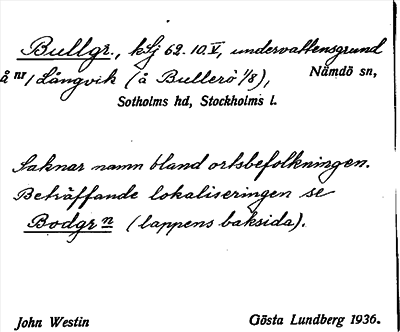 Bullgr., klj 62. 10. V, undervattensgrund
å nr 1 Långvik (å Bullerö 1/8), Nämdö sn,
Sotholms hd, Stockholms l.
Saknar namn bland ortsbefolkningen.
Beträffande lokaliseringen se
Bodgr n (lappens baksida).
John Westin Gösta Lundberg 1936.